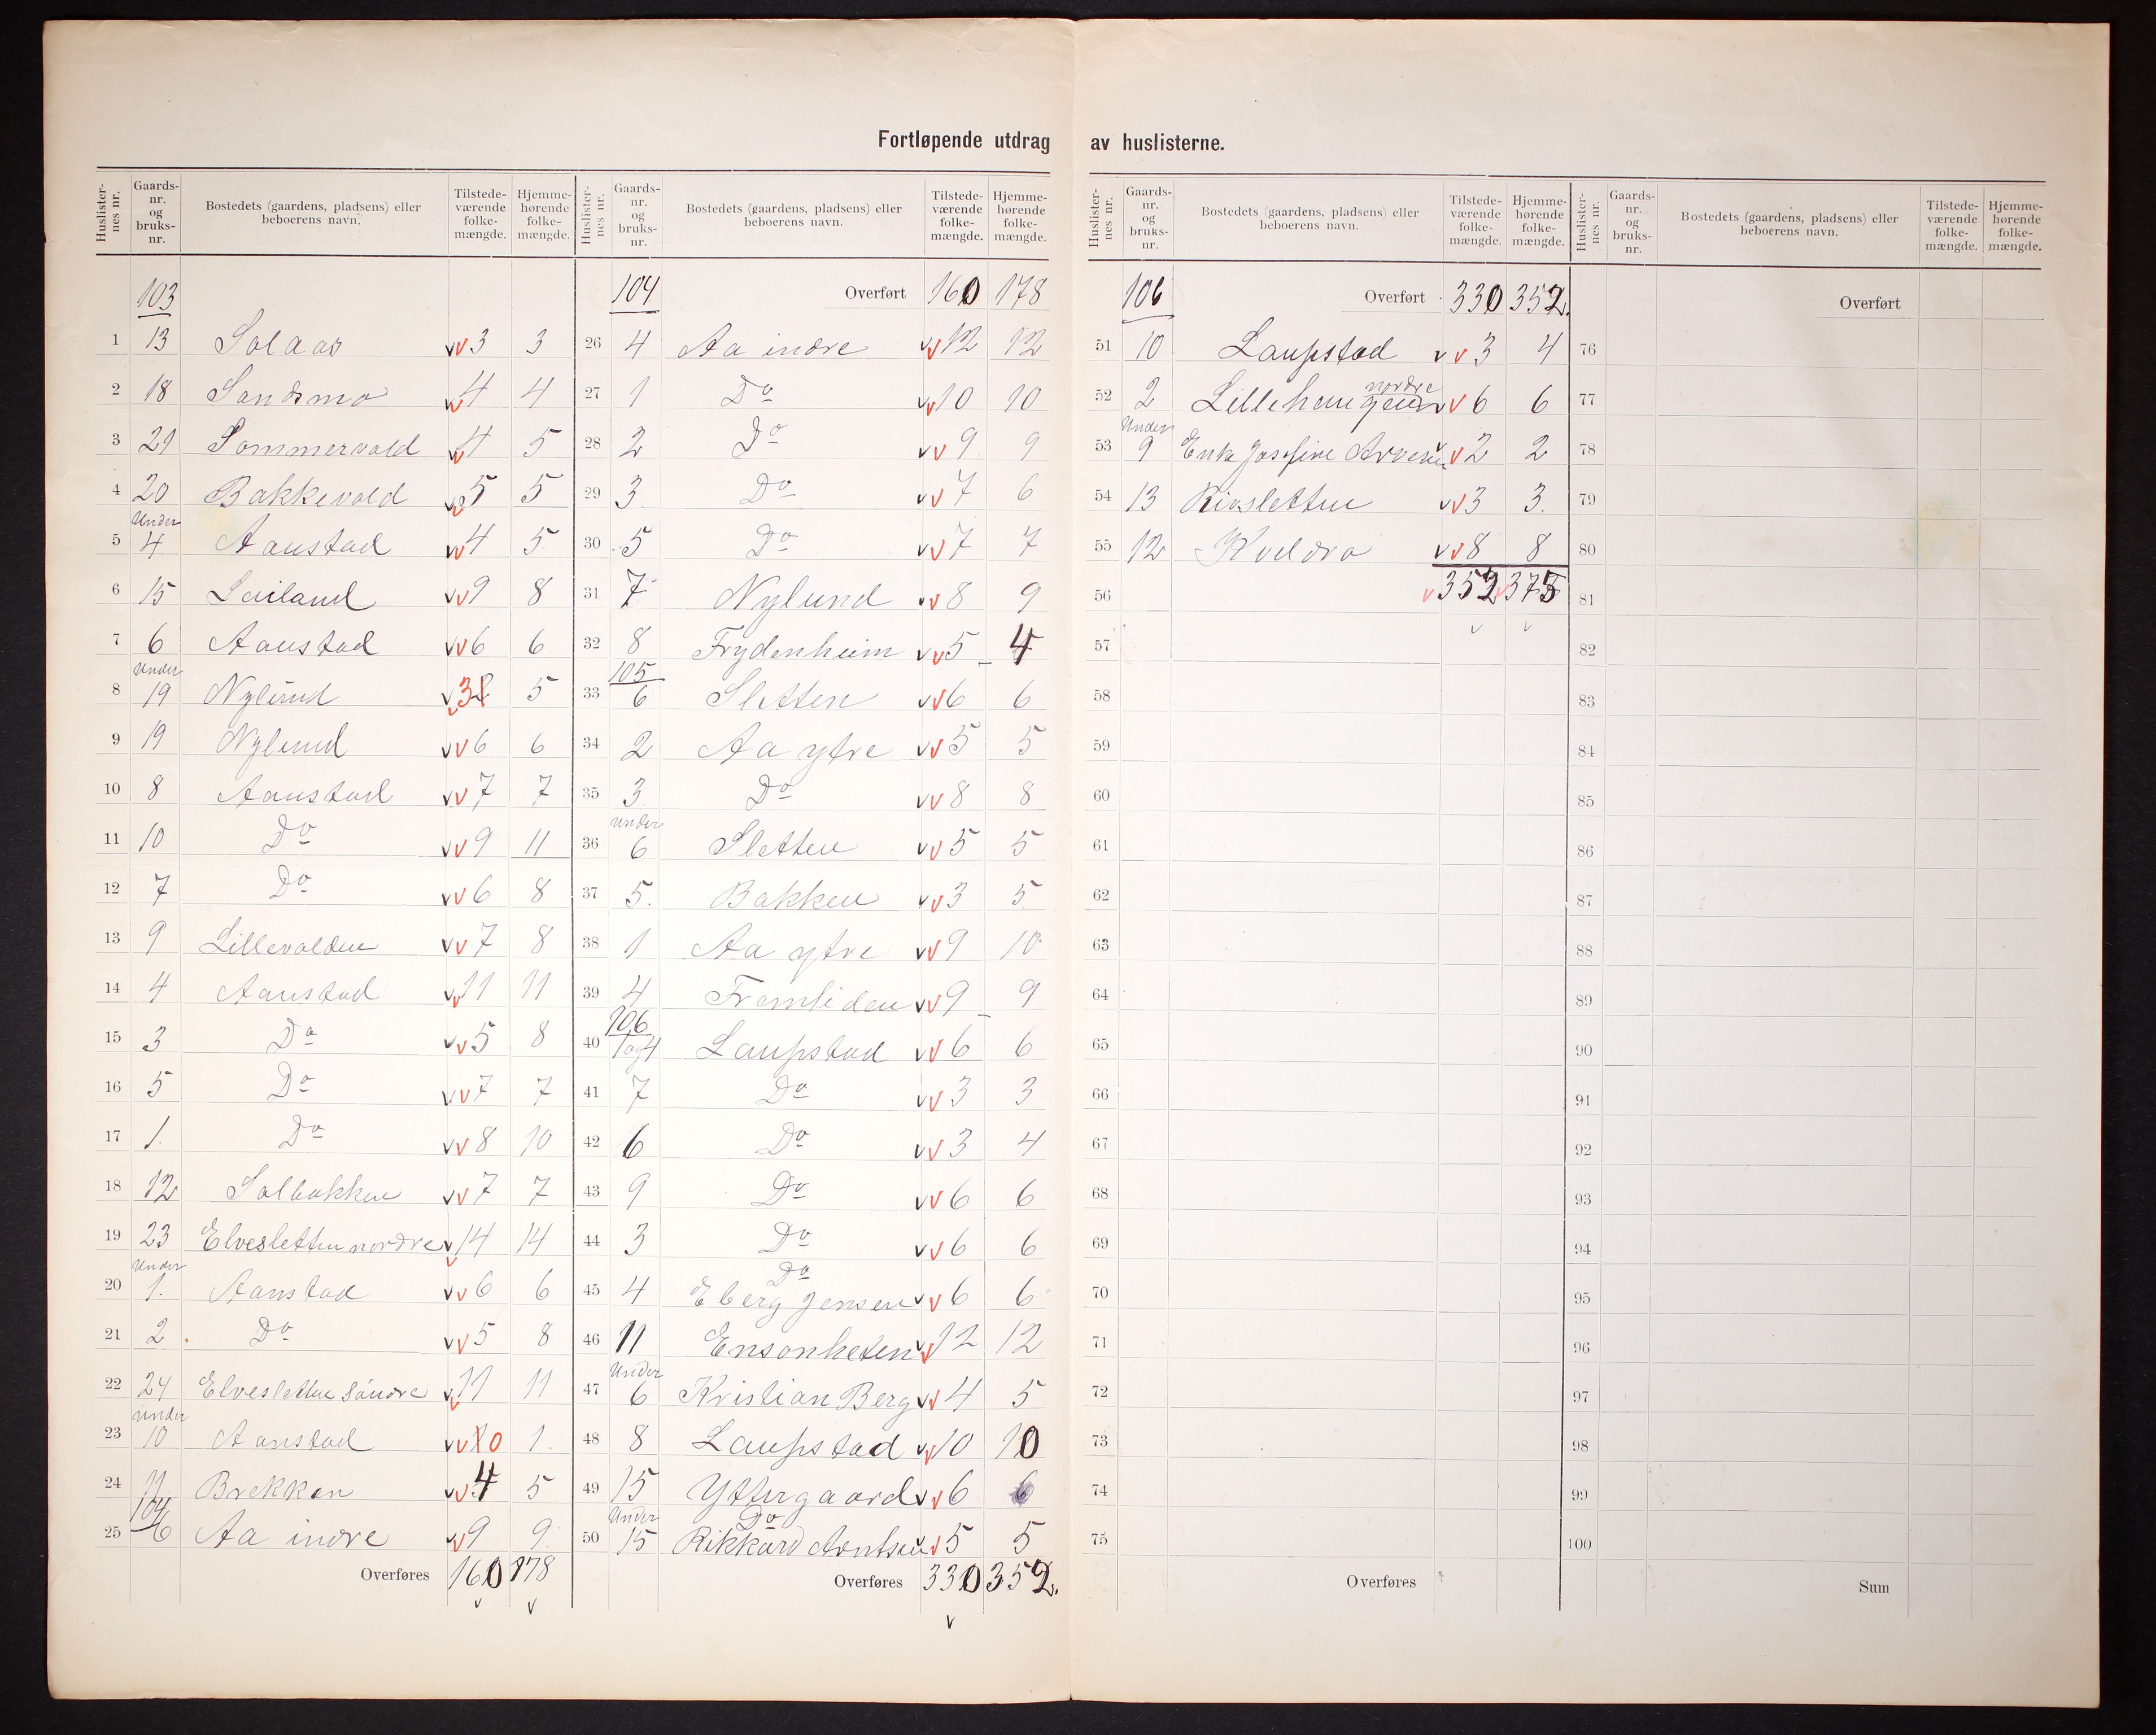 Fortløpende utdrag av huslisterne.
Huslister-nes nr. | Gaards-nr. og bruks-nr. | Bostedets (gaardens, pladsens) eller beboerens navn. | Tilstede-værende folke-mængde. | Hjemme-hørende folke-mængde.
103
1 13 Solaas vv 3 3
2 18 Sandsmo vv 4 4
3 21 Sommervold vv 4 5
4 20 Bakkevold vv 5 5
Under
5 4 Aanstad vv 4 5
6 15 Leiland vv 9 8
7 6 Aanstad vv 6 6
Under
8 19 Nylund vv 3 5
9 19 Nylund vv 6 6
10 8 Aanstad vv 7 7
11 10 Do vv 9 11
12 7 Do vv 6 8
13 9 Lillevolden vv 7 8
14 4 Aanstad vv 11 11
15 3 Do vv 5 8
16 5 Do vv 7 7
17 1. Do vv 8 10
18 12 Solbakken vv 7 7
19 23 Elvesletten nordre vv 14 14
Under
20 1. Aanstad vv 6 6
21 2 Do vv 5 8
22 24 Elvesletten söndre vv 11 11
under
23 10 Aanstad vv 0 1.
24 11 Brekkan vv 4 5
104
25 6 Aa indre vv 9 9
Overføres 160 178
v v
Huslister-nes nr. | Gaards-nr. og bruks-nr. | Bostedets (gaardens, pladsens) eller beboerens navn. | Tilstede-værende folke-mængde. | Hjemme-hørende folke-mængde.
104 Overført 160 178
26 4 Aa indre vv 12 12
27 1 Do vv 10 10
28 2 Do vv 9 9
29 3 Do vv 7 6
30 5 Do vv 7 7
31 7 Nylund vv 8 9
32 8 Frydenheim vv 5 4
105
33 6 Sletten vv 6 6
34 2 Aa ytre vv 5 5
35 3 Do vv 8 8
under
36 6 Sletten vv 5 5
37 5. Bakken vv 3 5
38 1 Aa ytre vv 9 10
39 4 Fremliden vv 9 9
106
40 1 og 4 Laupstad vv 6 6
41 7 Do vv 3 3
42 6 Do vv 3 4
43 9 Do vv 6 6
44 3 Do vv 6 6
Do
45 4 Eberg Jensen vv 6 6
46 11 Ensomheten vv 12 12
Under
47 6 Kristian Berg vv 4 5
48 8 Laupstad vv 10 10
49 15 Yttergaard vv 6 6
Under Do
50 15 Rikkard Arntsen vv 5 5
Overføres 330 352.
v
Huslister-nes nr. | Gaards-nr. og bruks-nr. | Bostedets (gaardens, pladsens) eller beboerens navn. | Tilstede-værende folke-mængde. | Hjemme-hørende folke-mængde.
106 Overført 330 352.
51 10 Laupstad vv 3 4
52 2 Lillehaugen nordre vv 6 6
Under
53 9 Enke Josefine Arvesen vv 2 2
54 13 vv 3 3.
55 12 Kveldro vv 8 8
56 v 352 v 375
v v
57
58
59
60
61
62
63
64
65
66
67
68
69
70
71
72
73
74
75
Overføres
Huslister-nes nr. | Gaards-nr. og bruks-nr. | Bostedets (gaardens, pladsens) eller beboerens navn. | Tilstede-værende folke-mængde. | Hjemme-hørende folke-mængde.
Overført
76
77
78
79
80
81
82
83
84
85
86
87
88
89
90
91
92
93
94
95
96
97
98
99
100
Sum